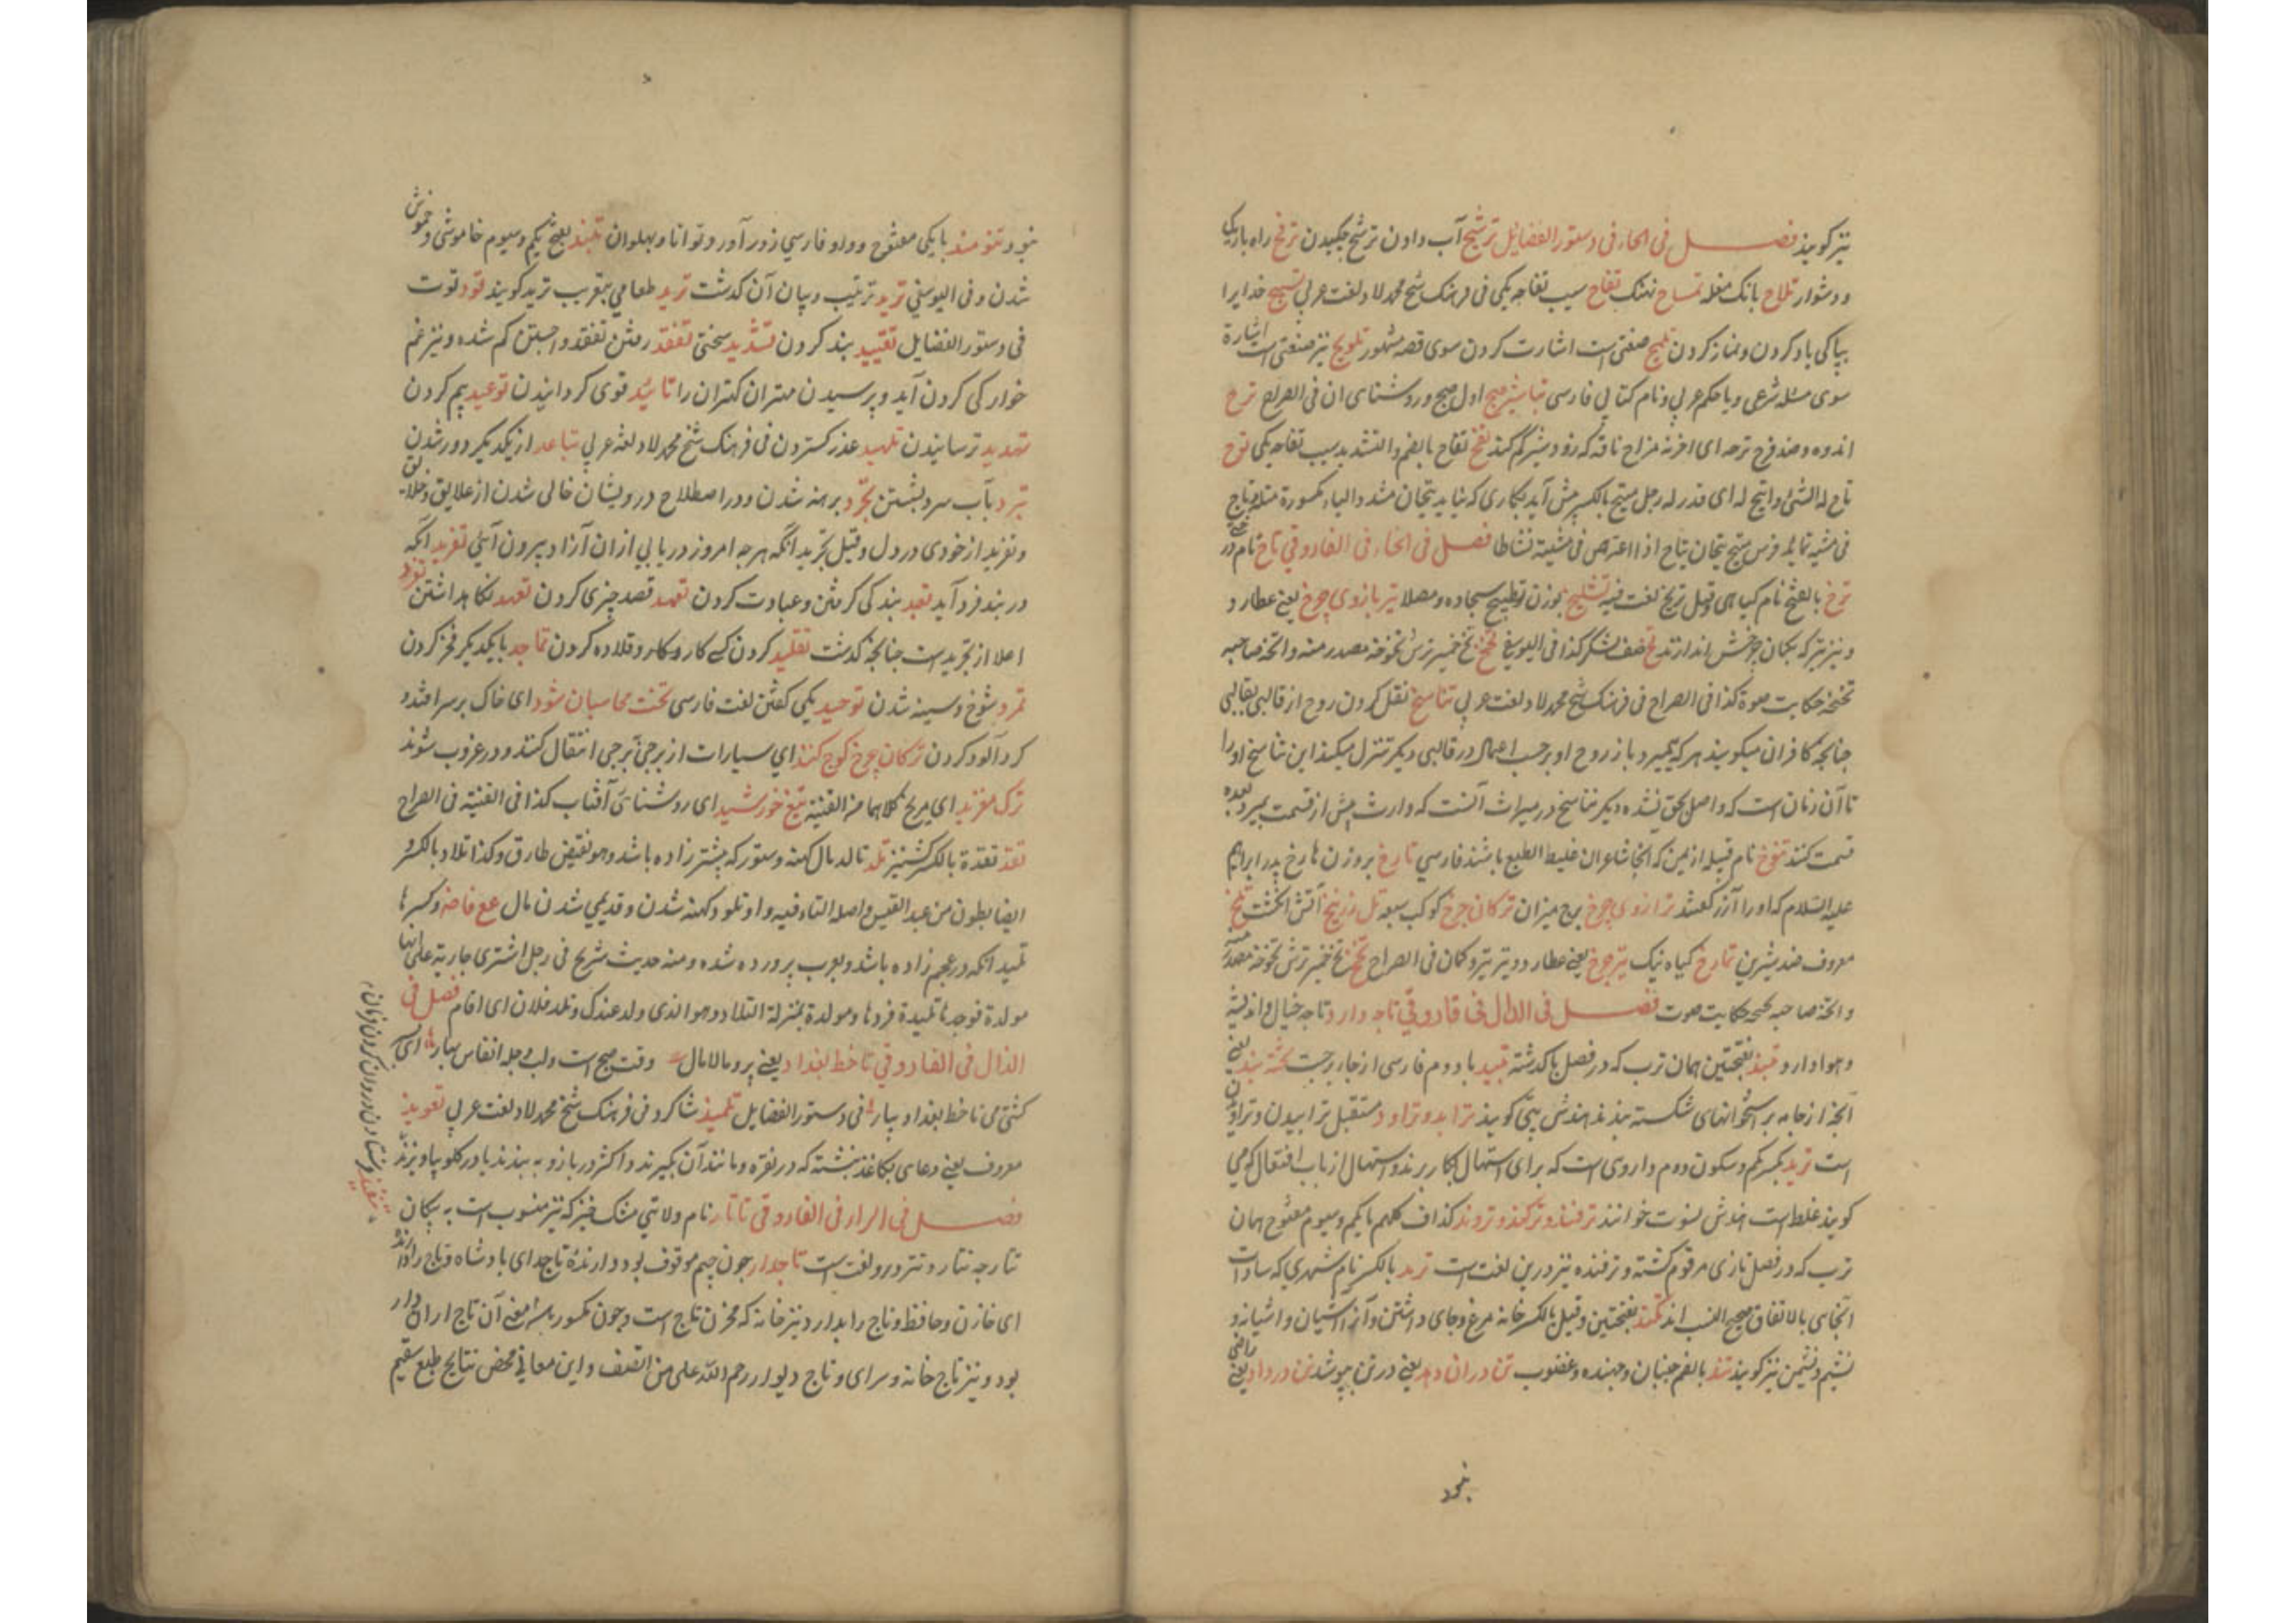 نیز گویند فصل فی الحاء فی دستور الفضایل ترشیح آب دادن ترشح چکیدن ترح راه باریک
و دشوار تلاح بانک مغله تمساح نهنک تفاح سیب تفاحه یکی فی فرهنک شیخ محمد لاد لغت عربی تسبیح خدایرا
بپاکی یاد کردن و نماز کردن تلمیح صفتی است اشارت کردن سوی قصه مشهور تلویح نیز صنعتی است اشارة
سوی مسئله شرعی و یا حکم عربی و نام کتابی فارسی تباشیر صبح اول صبح و روشنای ان فی الصراح ترح
اندوه و ضد فرح ترحه ای احزنه مزاح ناقه که زود شیر کم کند تفح تفاح بالضم و التشدید سیب تفاحه یکی توح
تاح له الشئ و اتیح له ای قدر له رجل متیح بالکسر پیش آید بکاری که نباید تیحان مشدد والیاء مکسورة مثله تاح
فی مشیه تمایله فرس متیح تیحان یتاح اذا اعترض فی مشیته نشاطا فصل فی الخاء فی الفاروقی تاخ نام در
ترخ بالفتح نام کیاهی و قیل تریخ لغت فیه تشلیخ بوزن توطیخ سجاده و مصلا تیر بازوی چرخ یعنی عطارد و
و نیز تیر که بکمان چرخش اندازند تخ ضف لشکر کذا فی الیوسفی تخخ تخ خمیر ترش تخوخه مصدر منه و اتخه صاحبه
تخخه حکایت صوة کذا فی الصراح فی فرهنک شیخ محمد لاد لغت عربی تناسخ نقل کردن روح از قالبی بقالبی
چنانچه کافران میکویند هر که بمیرد باز روح او برحسب اعمال در قالبی دیکر تنزل میکند این تناسخ او را
تا آن زمان است که واصل بحق نشده دیکر تناسخ در میراث آنست که وارث پیش از قسمت بمیرد بعده
قسمت کنند تنوخ نام قبیله از یمن که انجا شاعران غلیظ الطبع باشند فارسی تارخ بروزن مارخ پدر ابراهیم
علیه السلام که او را آزر کفتند ترازوی چرخ برج میزان ترکان چرخ کوکب سبعه تل زرنیخ آتش انکشت تلخ
معروف ضد شیرین تمارخ کیاه نیک تیر چرخ یعنی عطارد و تیر تیرو کمان فی الصراح تخخ تخ خمیر ترش تخوخه مصدر
و اتخه صاحبه تخخه حکایت صوت فصل فی الدال فی فاروقی تاجه دارد تاجه خیال و اندیشه
و هوا دارد تبند بفتحتین همان ترب که در فصل با کذشته تبید با دوم فارسی از جا برجست تخته بند یعنی
آنچه از جامه بر استخوانهای شکسته بندند هندش پتی کویند ترابد و تراود مستقبل ترابیدن و تراویدن
است ترید بکسر یکم و سکون دوم داروی است که برای استهال بکار برند و استهال از باب افتعال که می
کویند غلط است هندش نسوت خوانند ترفند و ترکند و تروند کذاف کلهم بایکم و سیوم مفتوح همان
ترب که در فصل تازی مرقوم کشته و ترفنده نیز درین لغت است ترمد بالکسر نام شهری که سادات
آنجای بالاتفاق صحیح النسب اند تکند بفتحتین و قیل بالکسر خانه مرغ و جای داشتن و آنرا آشیان و اشیانه و
نشیم و نشیمن نیز کویند تند بالضم جنبان و جهنده و غضوب تن دران دهد یعنی در تن بپوشد تن در داد یعنی راضی
بنود
نبود و تنومند بایکی مفتوح و واو فارسی زور آور و توانا و پهلوان تلبند بفتح یکم و سیوم خاموشی و خموش
شدن و فی الیوسفی ترید ترتیب و بیان آن کذشت ترید طعامی بتعریب ترید کویند تود توت
فی دستور الفضایل تقیید بند کردن تشدید سختی تفقد رفتن تفقد و اجستن کم شده و نیز غم
خوارکی کردن آید و پرسیدن مهتران کهتران را تائید قوی کردانیدن توعید بیم کردن
تهدید ترسانیدن تمهید عذر کستردن فی فرهنک شیخ محمد لاد لغت عربی تباعد از یکدیکر دور شدن
تبرد بآب سرد بشستن تجرد برهنه شدن و در اصطلاح درویشان خالی شدن از علایق و خلایق
و تفرید از خودی در دل و قیل تجرید انکه هر چه امروز دریابی از ان آزاد بیرون آئی تفرید آنکه
در بند فردا آید تعبد بندکی کرفتن و عبادت کردن تعمد قصد چیزی کردن تعهد نکاه داشتن تفرد
اعلا از تجرید است چنانچه کذشت تقلید کردن کسی کاروبار و قلاده کردن تماجد بایکدیکر فخر کردن
تمرد شوخ و سینه شدن توحید یکی کفتن لغت فارسی تخت محاسبان شود ای خاک بر سر افتد و
کرد آلود کردن ترکان چرخ کوچ کنند ای سیارات از برجی ببرجی انتقال کنند و در غروب شوند
ترک مغرید ای مریخ کلاهما من القنیه تیغ خورشید ای روشنای آفتاب کذا فی القنیه فی الصراح
تقد تقدة بالکسر کشنیز تلد تالد مال کهنه و ستور که پیشتر زاده باشد و هو نقیض طارق و کذا تلاد بالکسر و
ایضا بطون من عبد القیس و اصله التاء فیه واو تلود کهنه شدن و قدیمی شدن مال عع فاضه و کسرها
تلید آنکه در عجم زاده باشد و بعرب پرورده شده و منه حدیث شریح فی رجل اشتری جاریة علی انها
مولدة فوجدها تلیدة فردها و مولدة بمنزلة التلاد و هو الذی ولد عندک و تلد فلان ای اقام فصل فی
الذال فی الفاروقی تا خط بغداد یعنی پر و مالامال وقت صبح است و لب دجله انفاس بهار ای پسر
کشتی می تا خط بغداد بیار فی دستور الفضایل تلمیذ شاکرد فی فرهنک شیخ محمد لاد لغت عربی تعویذ
معروف یعنی دعای بکاغذ نبشته که در نقره و مانند آن بکیرند و اکثر در بازو به بندند یا در کلو بیاویزند
فصل فی الراء فی الفاروقی تاتار نام ولایتی مشک خیز که تیز منسوب است به پیکان
تتار چه تتار و تتر درو لغت است تاجدار چون جیم موقوف بود دارندهٔ تاج ای بادشاه و تاج را دارنده
ای خازن و حافظ و تاج را بدارد و نیز خانه که مخزن تاج است و چون مکسور باشد معنی آن تاج ار ان دار
بود و نیز تاج خانه و سرای و تاج دیوار رحم الله علی من انصف و این معانی محض نتایج طبع سقیم
تنفیذ فرستادن و روان کردن فرمان